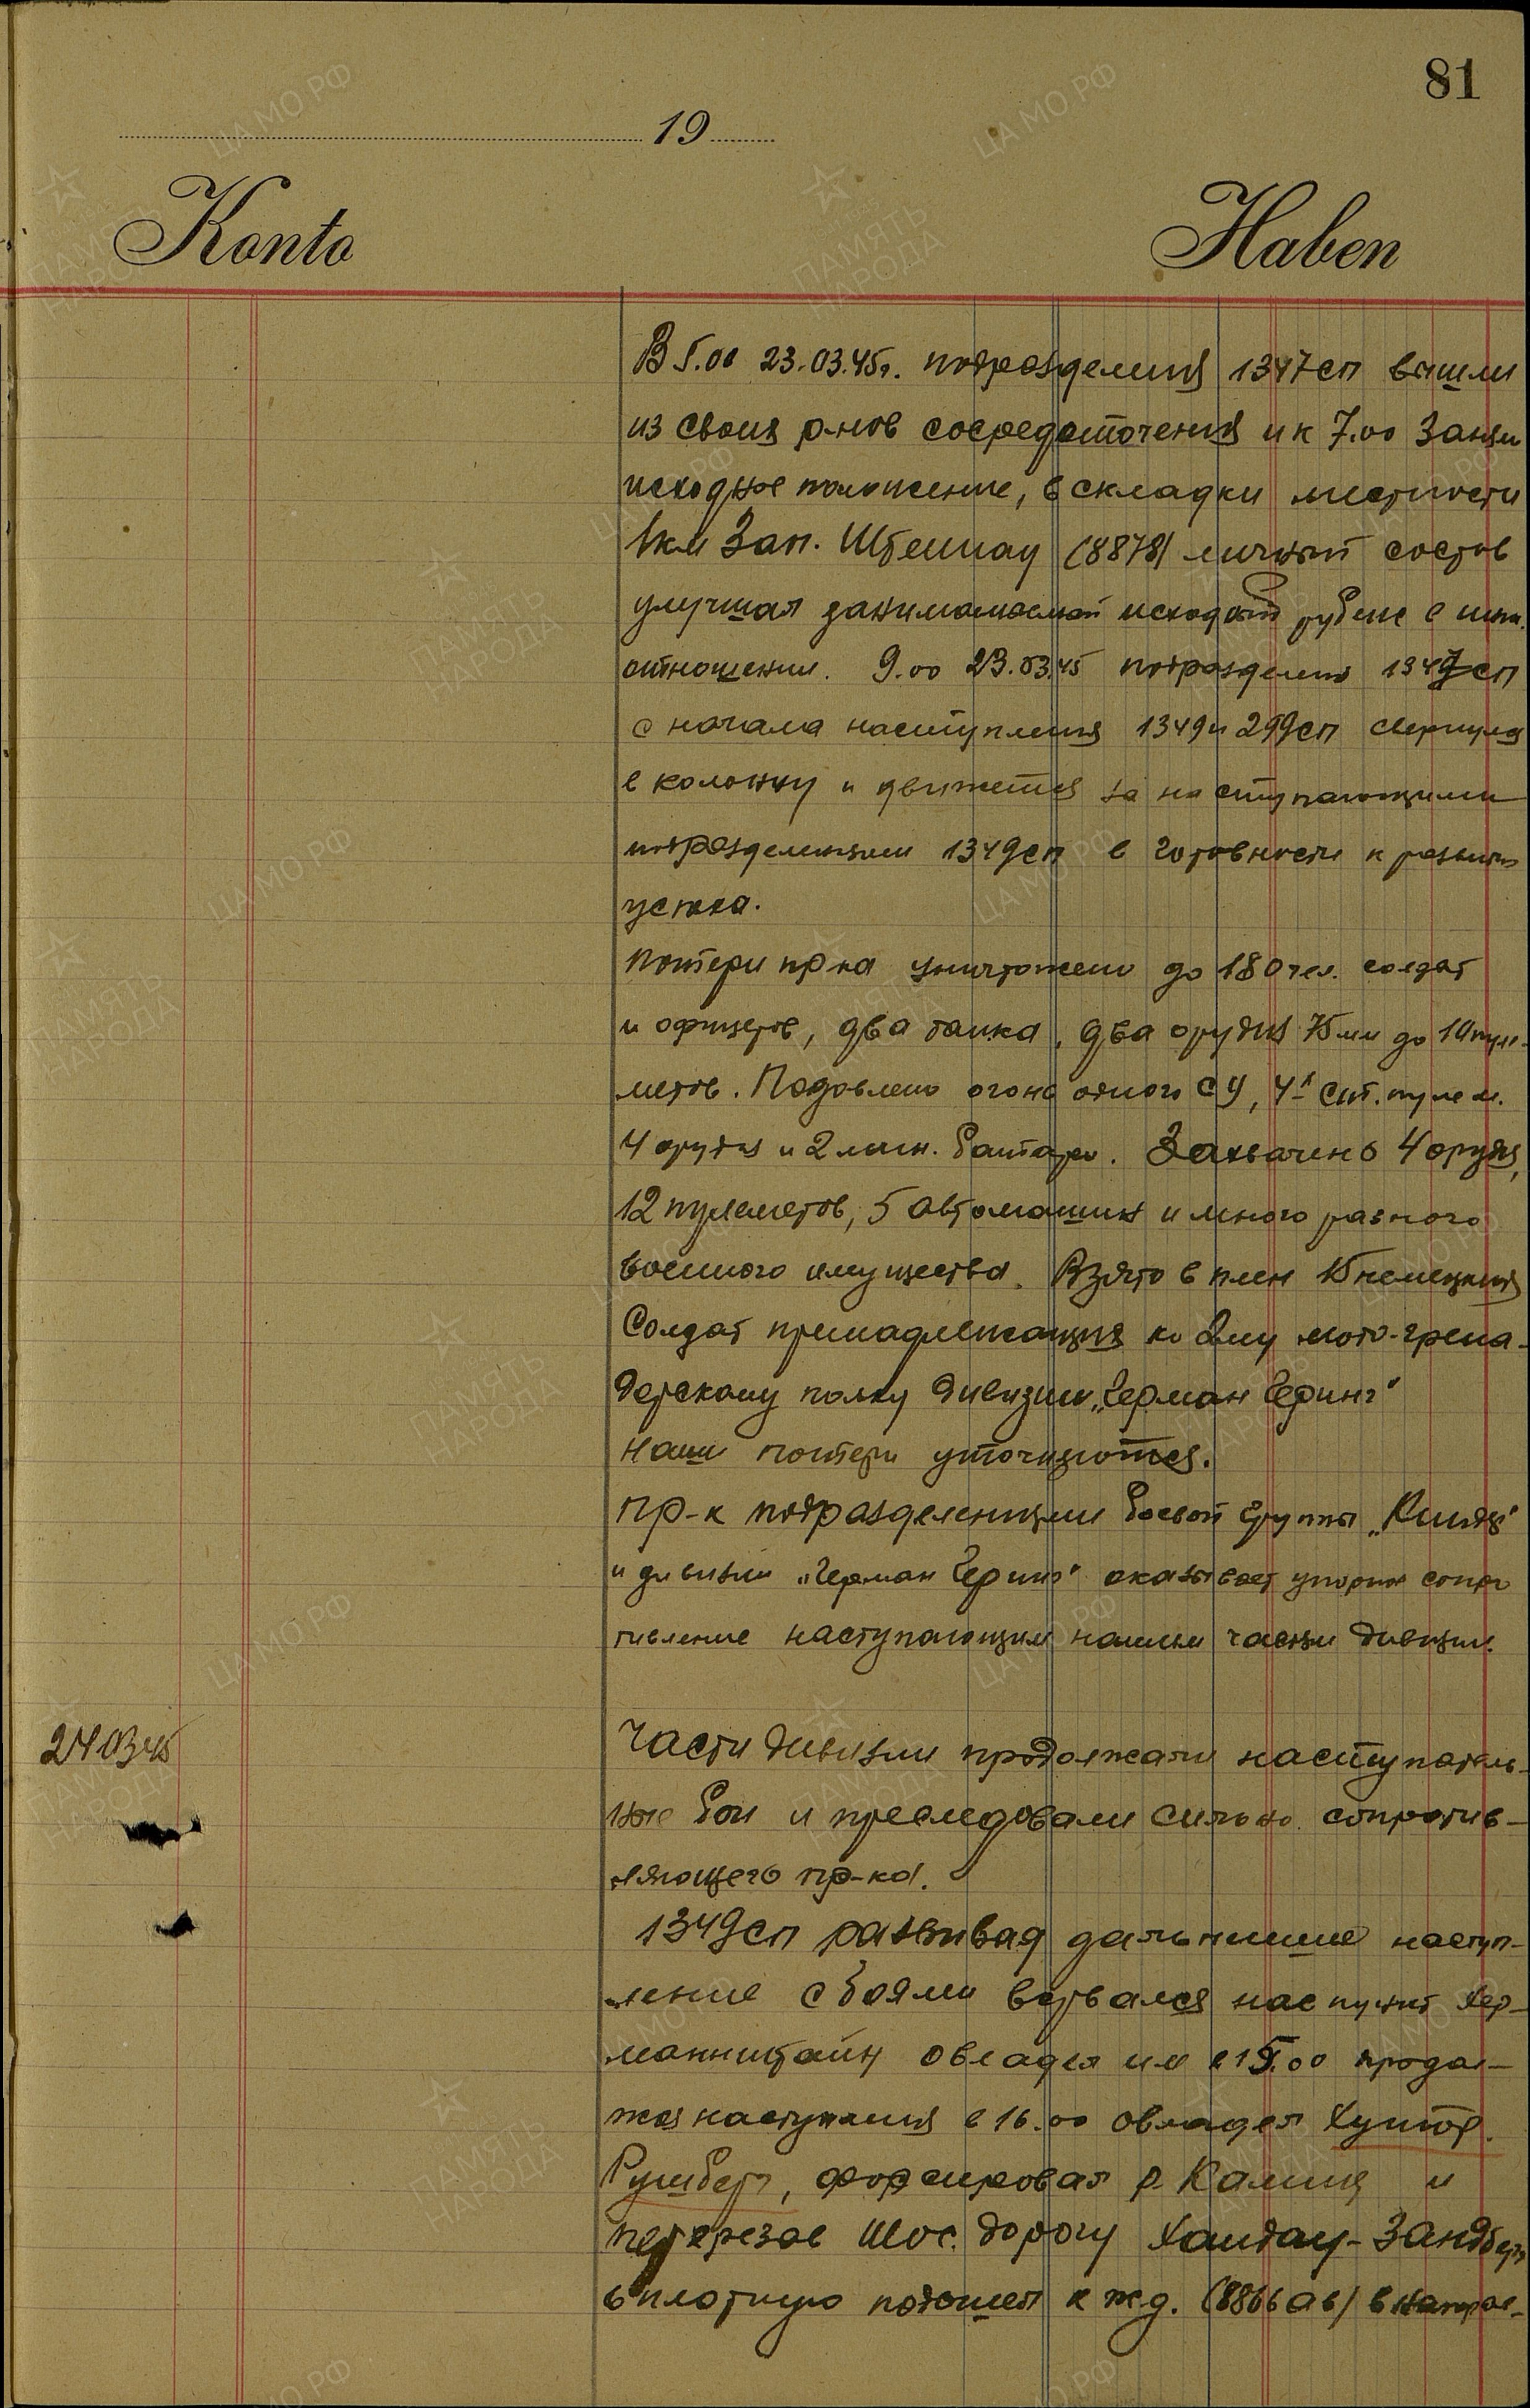 81
19
Konto
Haben
В 5.00 23.03.45г. подразделения 1347сп вышли
из своих р-нов сосредоточения и к 7.00 заняли
исходное положение, в складки местности
1км Зап. (8878) личный состав
улучшал занимаемый исходный рубеж в инж.
отношении. 9.00 23.03.45 подразделения 1347сп
с начала наступления 1349 и 299сп свернулся
в колонну и движется за наступающими
подразделениями 1349сп в готовности к развитию
успеха.
Потери пр-ка уничтожено до 180 чел. солдат
и офицеров, два танка, два орудия 75мм до 10 пуле-
метов. Подавлен огонь одного СУ, 4х ст. пулем.
4 орудия и 2 мин. батареи. Захвачено 4 орудия,
12 пулеметов, 5 автомашин и много разного
военного имущества. Взято в плен 15 немецких
Солдат принадлежащих ко 2му мото-грена-
дерскому полку дивизии „Герман Геринг"
Наши потери уточняются.
Пр-к подразделениями боевой группы
и дивизии „Герман Геринг" оказывает упорное сопро
тивление наступающим нашим частям дивизии.
24 03 45
Части дивизии продолжали наступатель-
ные бои и преследовали сильно сопротив-
ляющего пр-ка.
1349сп развивая дальнейшее наступ-
ление с боями ворвался нас пункт Хер-
манштайн овладел им в 15.00 продол-
жая наступления в 16.00 овладел Хутор.
Румберг, форсировал р. и
перерезав Шос. дорогу Хайдау-Зандберг
вплотную подошел к ж.д. (8866 аб) в направ-